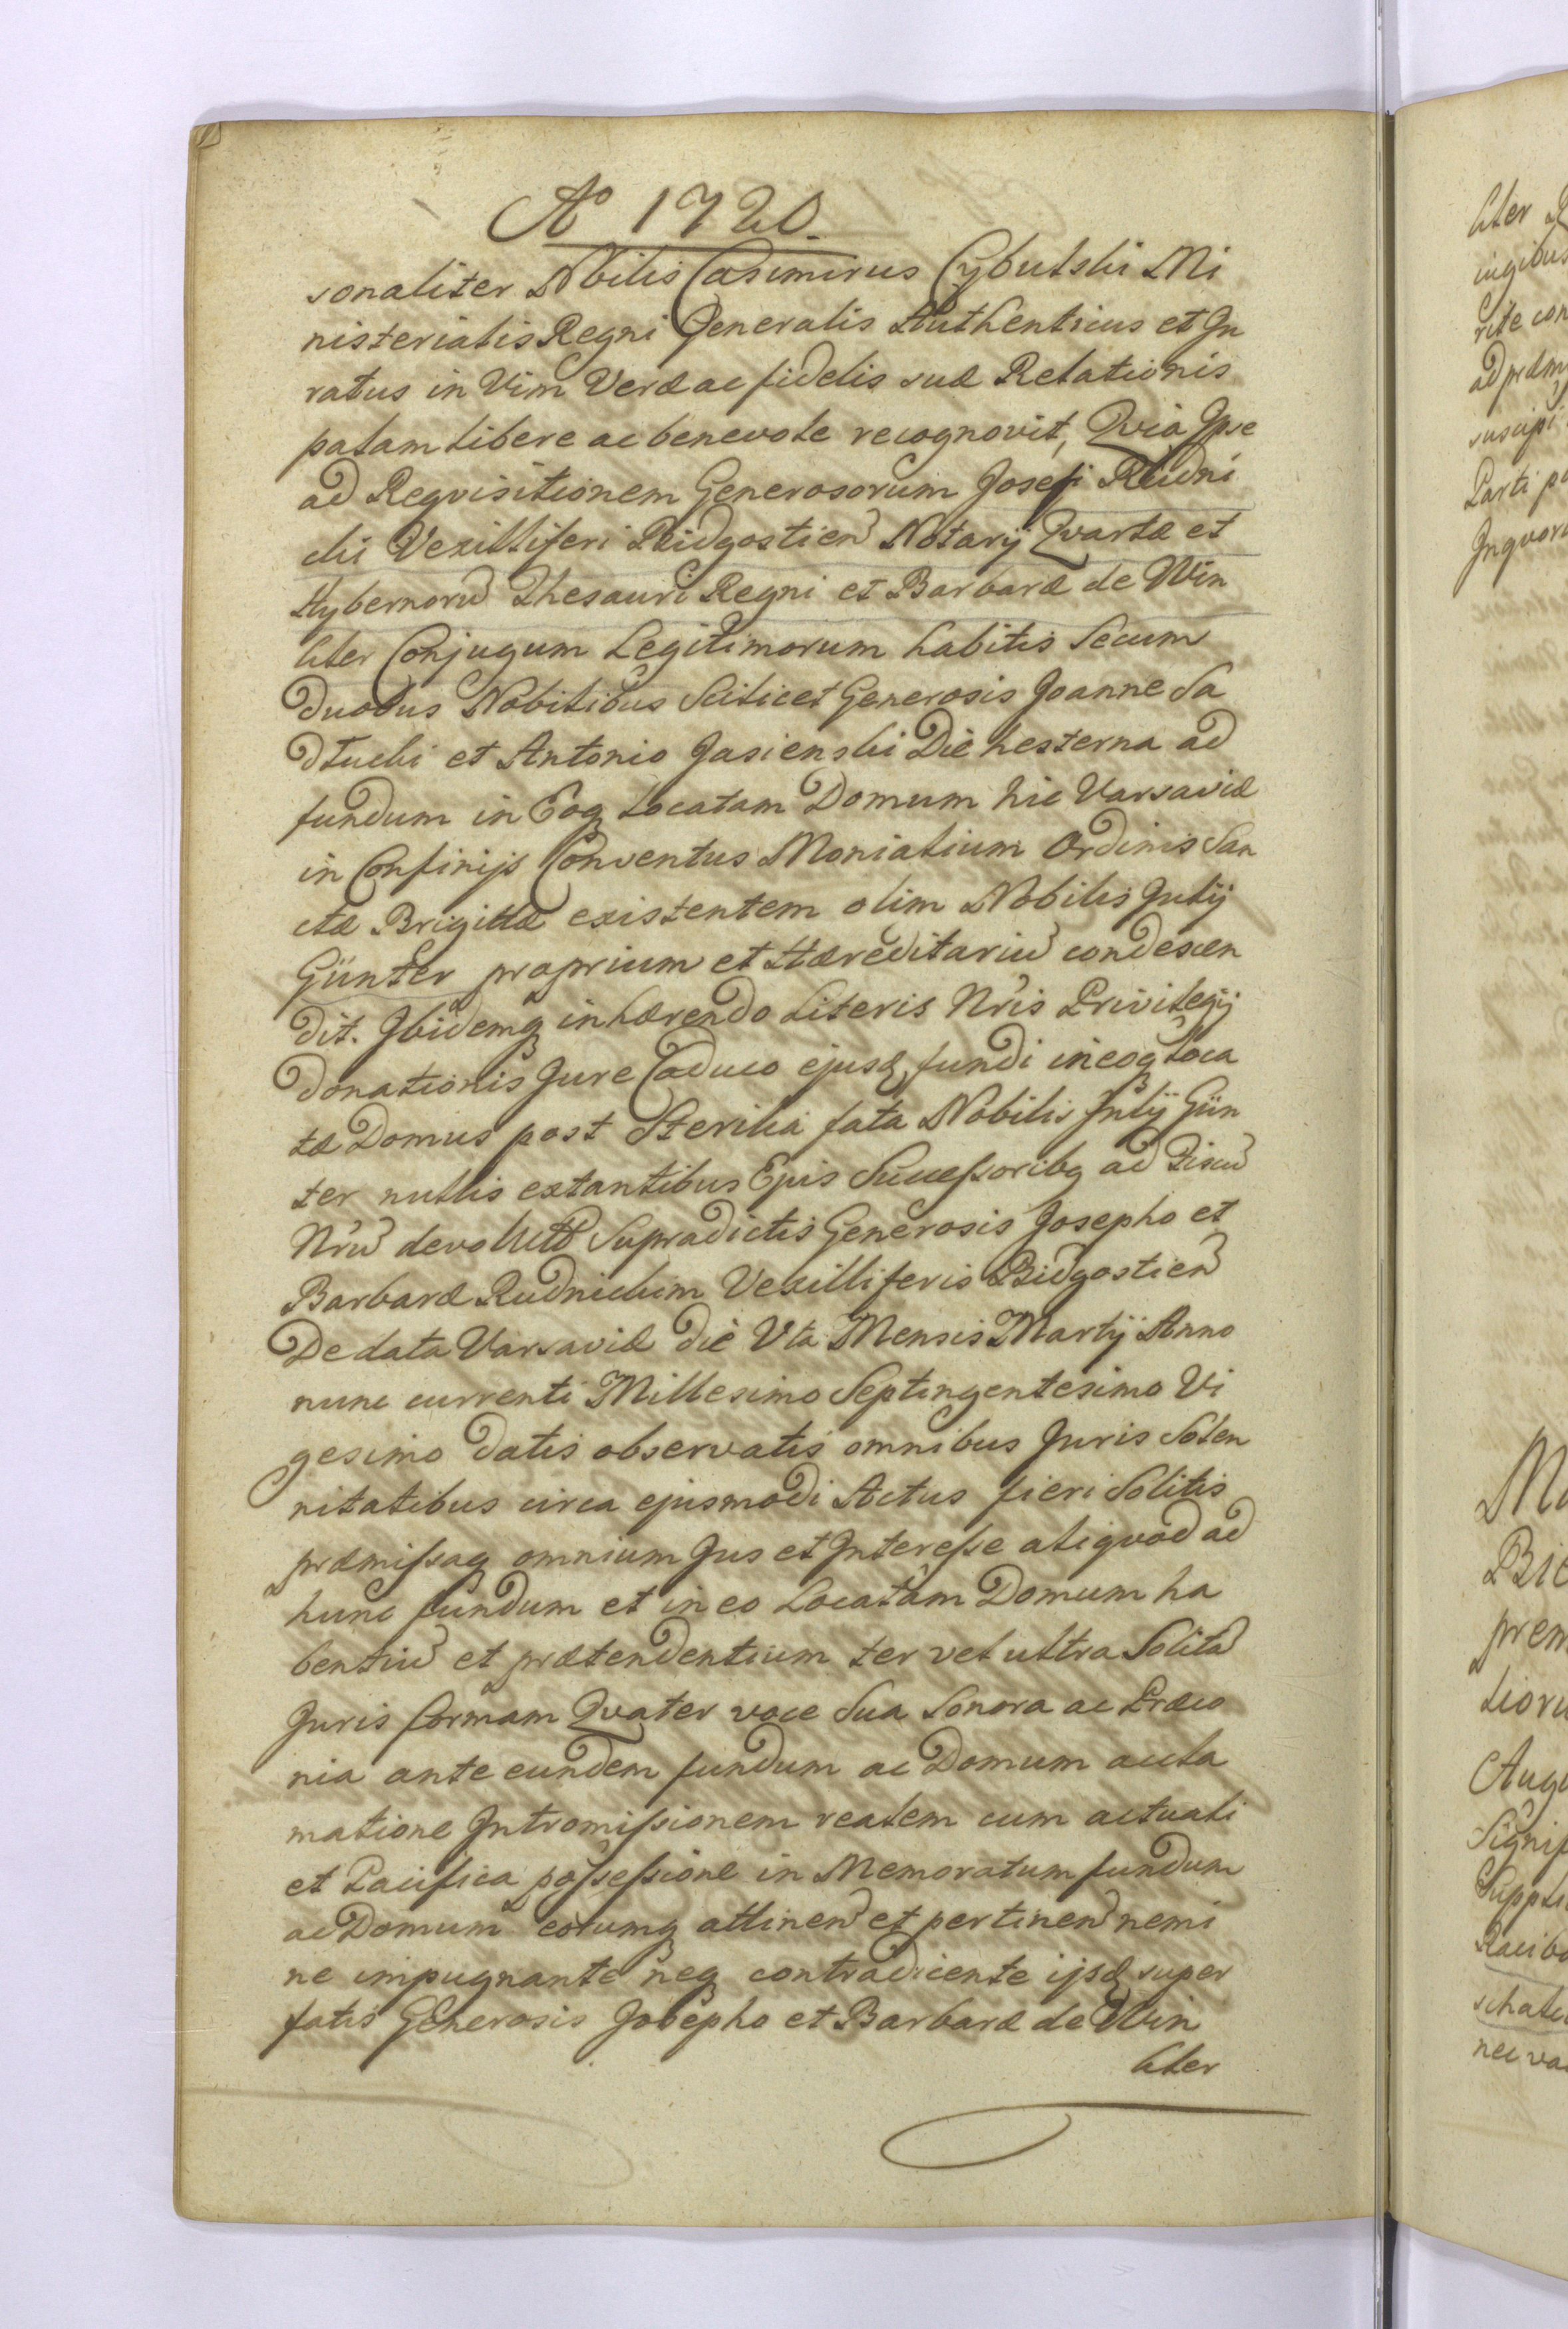 Ao 1720.
sonaliter Nbilis Casimirus Cybulski Mi
nisterialis Regni Generalis Authenticus et Ju
ratus in Vim Veræ ac fidelis suæ Relationis
palam libere ac benevole recognovit, Qvia Ipse
ad Reqvisitionem Generosorum Josefi Rudni
cki Vexilliferi Bidgostien Notarij Qvartæ et
Hybernoru Thesauri Regni et Barbaræ de Win
kler Conjugum Legitimorum habitis Secum
duobus Nobilibus Scilicet Generosis Joanne Sa
dlucki et Antonio Jasienski Die hesterna ad
fundum in Eoq Locatam Domum hic Varsaviæ
in Confinijs Conventus Monialium Ordinis San
ctæ Brigittæ existentem olim Nobilis Julij
Günter proprium et Hæreditariu condescen
dit. Ibidemq inhærendo Literis Nris Privilegij
Donationis Jure Caduco ejusd fundi in eoq loca
tæ Domus post Sterilia fata Nobilis Julij Gün
ter nullis extantibus Ejus Successoribq ad Fiscu
Nru devolut Supradictis Generosis Josepho et
Barbaræ Rudnickim Vexilliferis Bidgostien
De data Varsaviæ die Vta Mensis Martij Anno
nunc currenti Millesimo Septingentesimo Vi
gesimo datis observatis omnibus Juris Solen
nitatibus circa ejusmodi Actus fieri Solitis
præmissaq omnium Jus et Interesse aliqvod ad
hunc fundum et in eo Locatam Domum ha
bentiu et prætendentium ter vel ultra Solita
Juris formam Qvater voce Sua Sonora ac Præco
nia ante eundem fundum ac Domum accla
matione Intromissionem realem cum actuali
et Pacifica possessione in Memoratum fundum
ac Domum eorumq attinen et pertinen nemi
ne impugnante neq contradicente ijsd super
fatis Generosis Josepho et Barbaræ de Win
kler